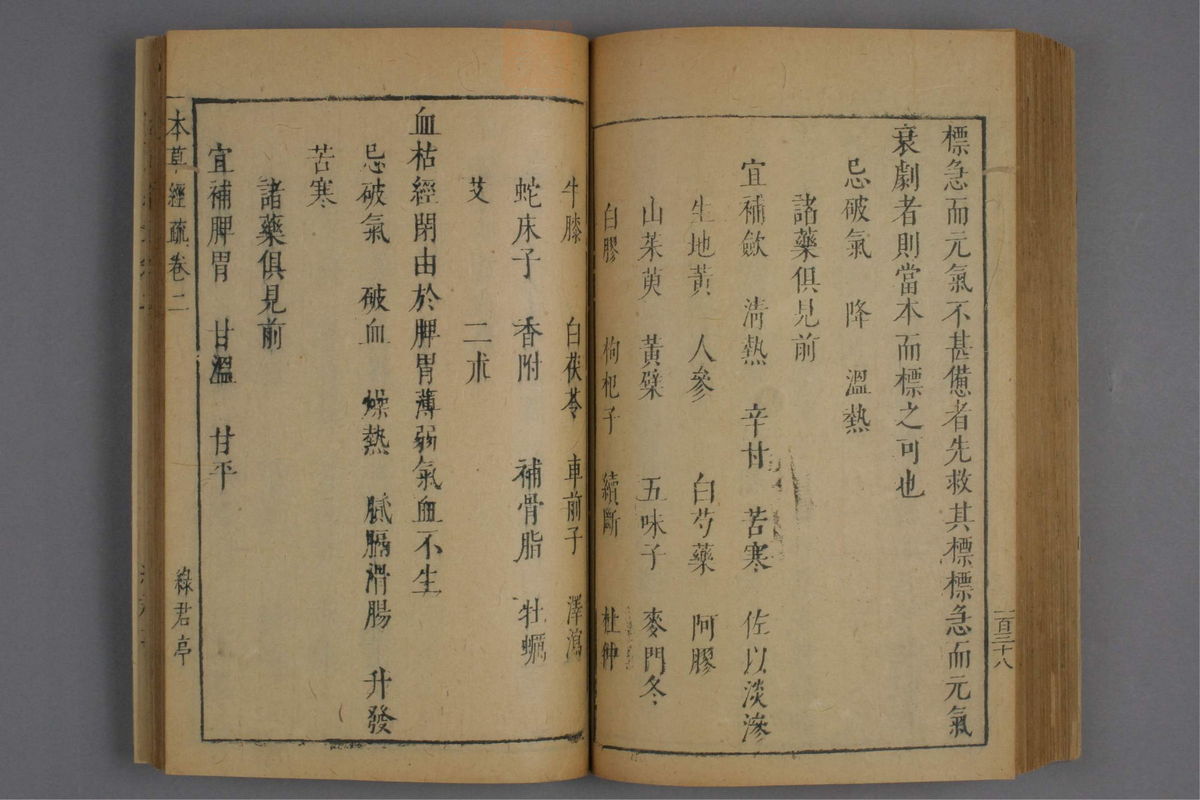 標急而元氣不甚憊者先救其標標急而元氣
衰劇者則當本而標之可也
忌破氣　降　溫熱
諸藥俱見前
宜補斂　清熱　辛甘　苦寒　佐以淡滲
生地黃　人參　白芍藥　阿膠
山茱萸　黃蘗　五味子　麥門冬
白膠　枸杞子　續斷　杜仲
一百三十八
牛膝　白茯苓　車前子　澤瀉
蛇床子　香附　補骨脂　牡蠣
艾　二朮
血枯經閉由於脾胃薄弱氣血不生
忌破氣　破血　燥熱　膩膈滑腸　升發
苦寒
諸藥俱見前
宜補脾胃　甘溫　甘平
本草經疏卷二　綠君亭